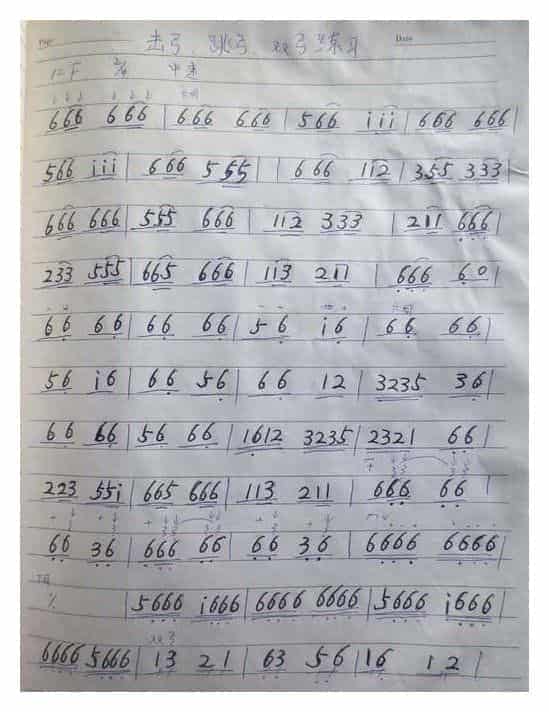 击弓 跳弓 双弓练习 Date
1=F 2/4 中速
666 666 | 666 666 | 566 iii | 666 666 |
566 iii | 666 555 | 666 112 | 355 333 |
666 666 | 555 666 | 112 333 | 211 666 |
233 555 | 665 666 | 113 211 | 666 60 |
66 66 | 66 66 | 56 i6 | 66 66 |
56 i6 | 66 56 | 66 12 | 3235 36 |
66 66 | 56 66 | 1612 3235 | 2321 66 |
223 55i | 665 666 | 113 211 | 666 66 |
66 36 | 666 66 | 66 36 | 6666 6666 |
5666 i666 | 6666 6666 | 5666 i666 |
双弓
6666 5666 | 13 21 | 63 56 | 16 12 |